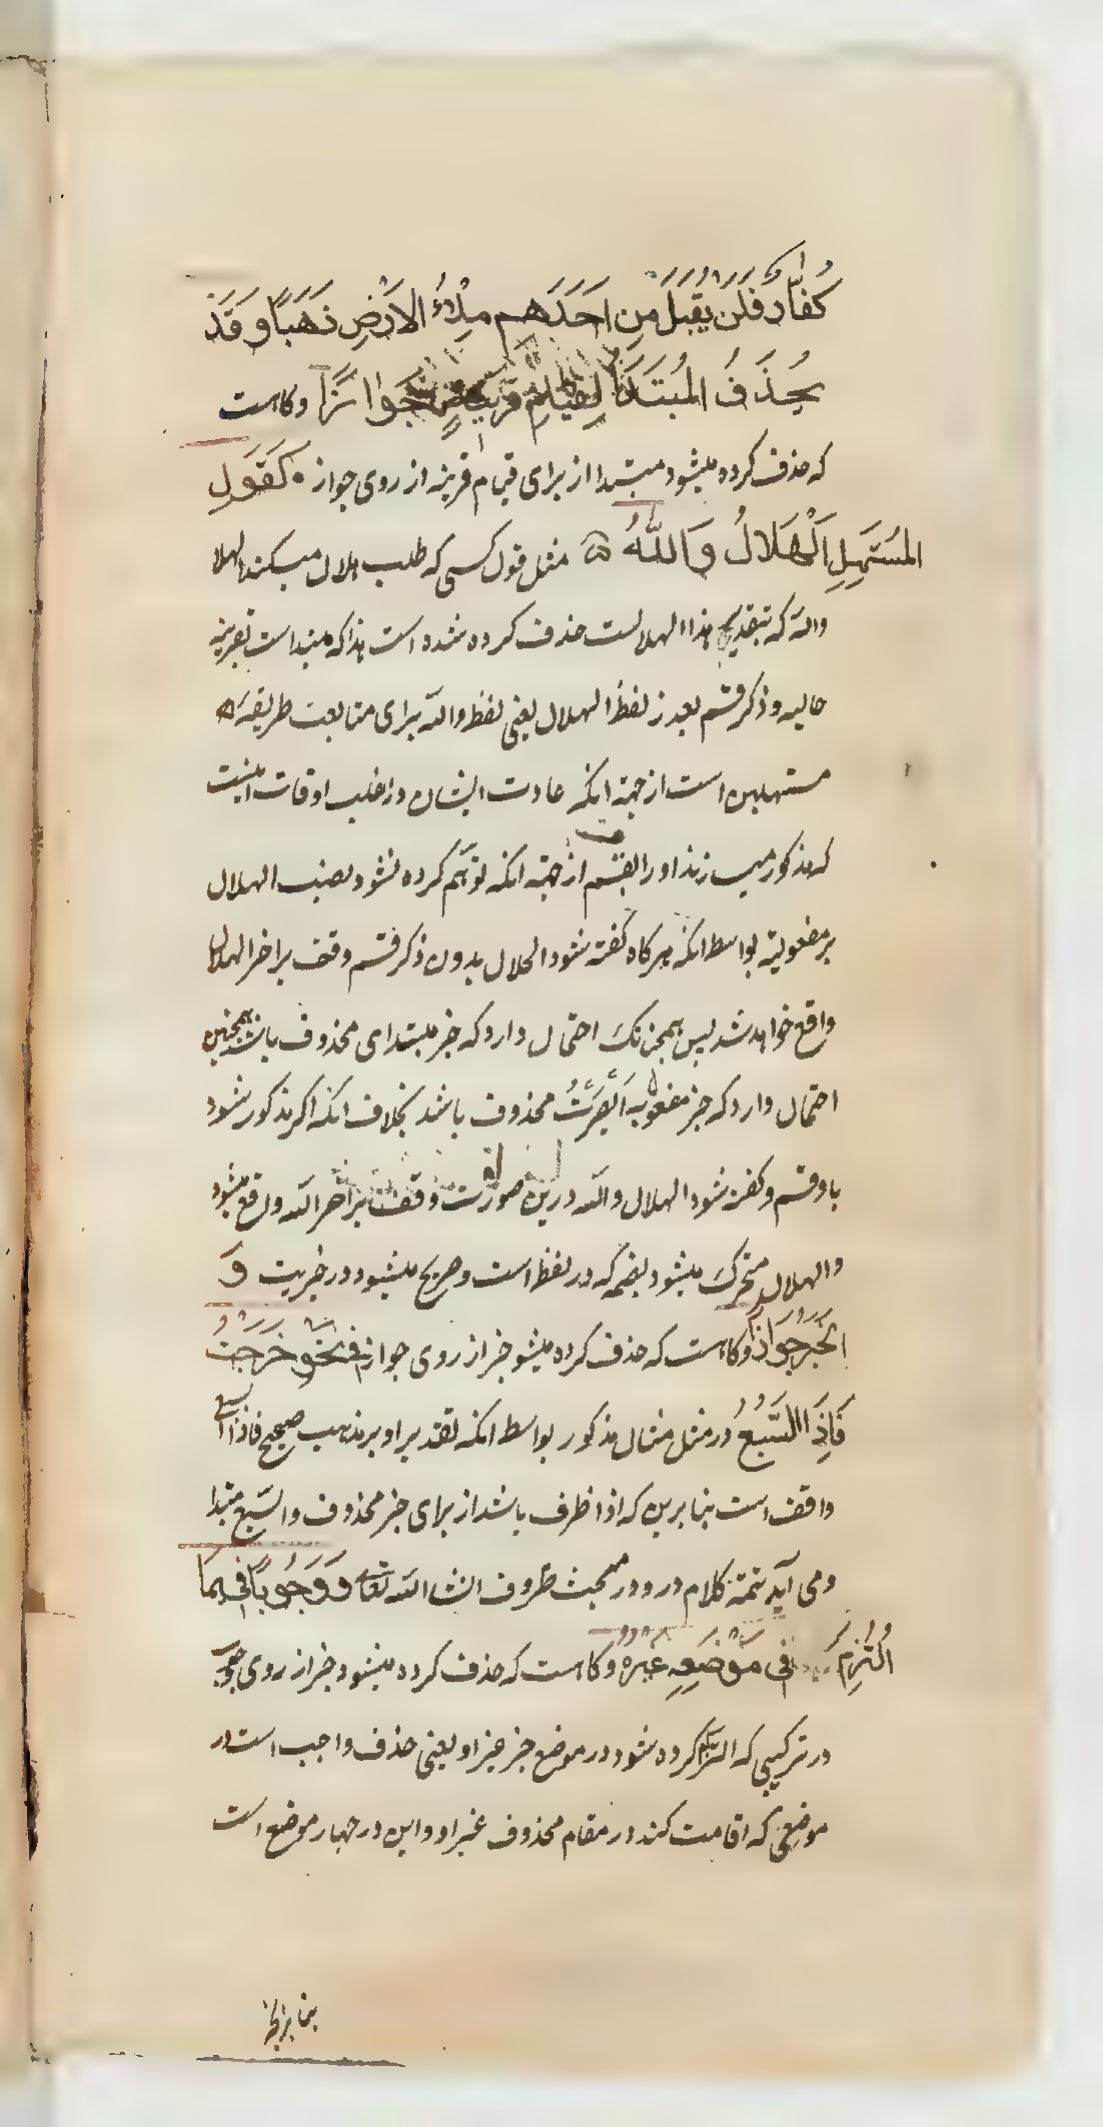 كُفّارٌ فَلَن يُقبَلَ مِن اَحَدِهِم مِلْءُ الاَرْضِ ذَهَبًا وَقَدْ
يُحذَفُ المُبتَدَاُ لِقِيَامِ قَرِينَةٍ جَوَازًا و کاهست
که حذف کرده میشود مبتدا از برای قیام قرینه از روی جواز كَقَولِ
المُستَهِلِ اَلْهِلَالُ وَاللّهُ مثل قول کسی که طلب هلال میکند الهلال
والله که بتقدیر هذا الهلالست حذف کرده شده است هذا که مبتداست بقرینه
حالیه و ذکر قسم بعد از لفظ الهلال یعنی لفظ والله برای متابعت طریقه
مستهلین است از جهة انکه عادت ایشان در اغلب اوقات اینست
که مذکور میسازند او را بقسم از جهة انکه توهّم کرده نشود نصب الهلال
بر مفعولیة بواسطه انکه هرکاه کفته شود الهلال بدون ذکر قسم وقف بر اخر الهلال
واقع خواهد شد پس همچنانک احتمال دارد که خبر مبتدای محذوف باشد همچنین
احتمال دارد که جز مفعول به اَبْصَرْتُ محذوف باشد بخلاف انکه اکر مذکور شود
با و قسم و کفته شود الهلال والله درین صورت وقف بر اخر الله واقع میشود
و الهلال متحرک میشود بضمه که در لفظ است و صریح میشود در خبریت وَ
الخَبَرُ جَوَازًا و کاهست که حذف کرده میشو خبر از روی جواز فِی نَحْوِ خَرَجْتُ
فَاِذَا السَّبُعُ در مثل مثال مذکور بواسطه انکه تقدیر او بر مذهب صحیح فاذا السبع
واقف است بنابرین که اذا ظرف باشد از برای خبر محذوف والسّبع مبتدا
و می اید تتمة کلام درو در مبحث ظروف انشا الله تعالی وَوُجُوبًا فِیمَا
اُلتُزِمَ فی مَوْضِعِهِ غَیرُهُ و کاهست که حذف کرده میشود خبر از روی وجوب
در ترکیبی که التزام کرده شود در موضع خبر غیر او یعنی حذف واجب است در
موضعی که اقامت کند در مقام محذوف غیر او و این در چهار موضع است